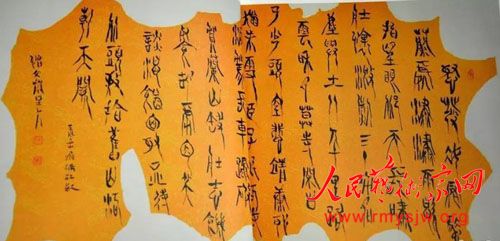 怒髮衝冠憑
闌處瀟瀟雨歇
抬望眼仰天長嘯
壯懷激烈三十功名
塵與土八千里路
雲和月莫等閒白
了少年頭空悲切靖康恥
猶未雪臣子恨何時滅駕長車踏破
賀蘭山缺壯志飢
餐胡虜肉笑
談渴飲匈奴血待
從頭收拾舊山河
朝天闕
人民藝術家网
www.rmysjw.org